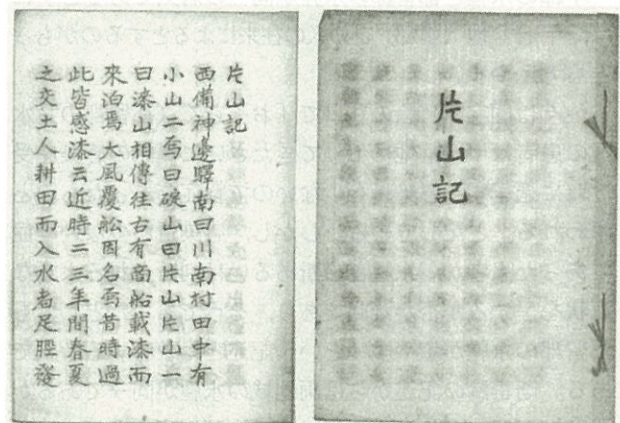 片山記
片山記
西備神邊驛南曰川南村田中有
小山二焉曰碇山曰片山片山一
曰漆山相傳往古有商船載漆而
來泊焉大風覆舩因名焉昔時過
此皆感漆云近時二三年間春夏
之交土人耕田而入水者足脛發